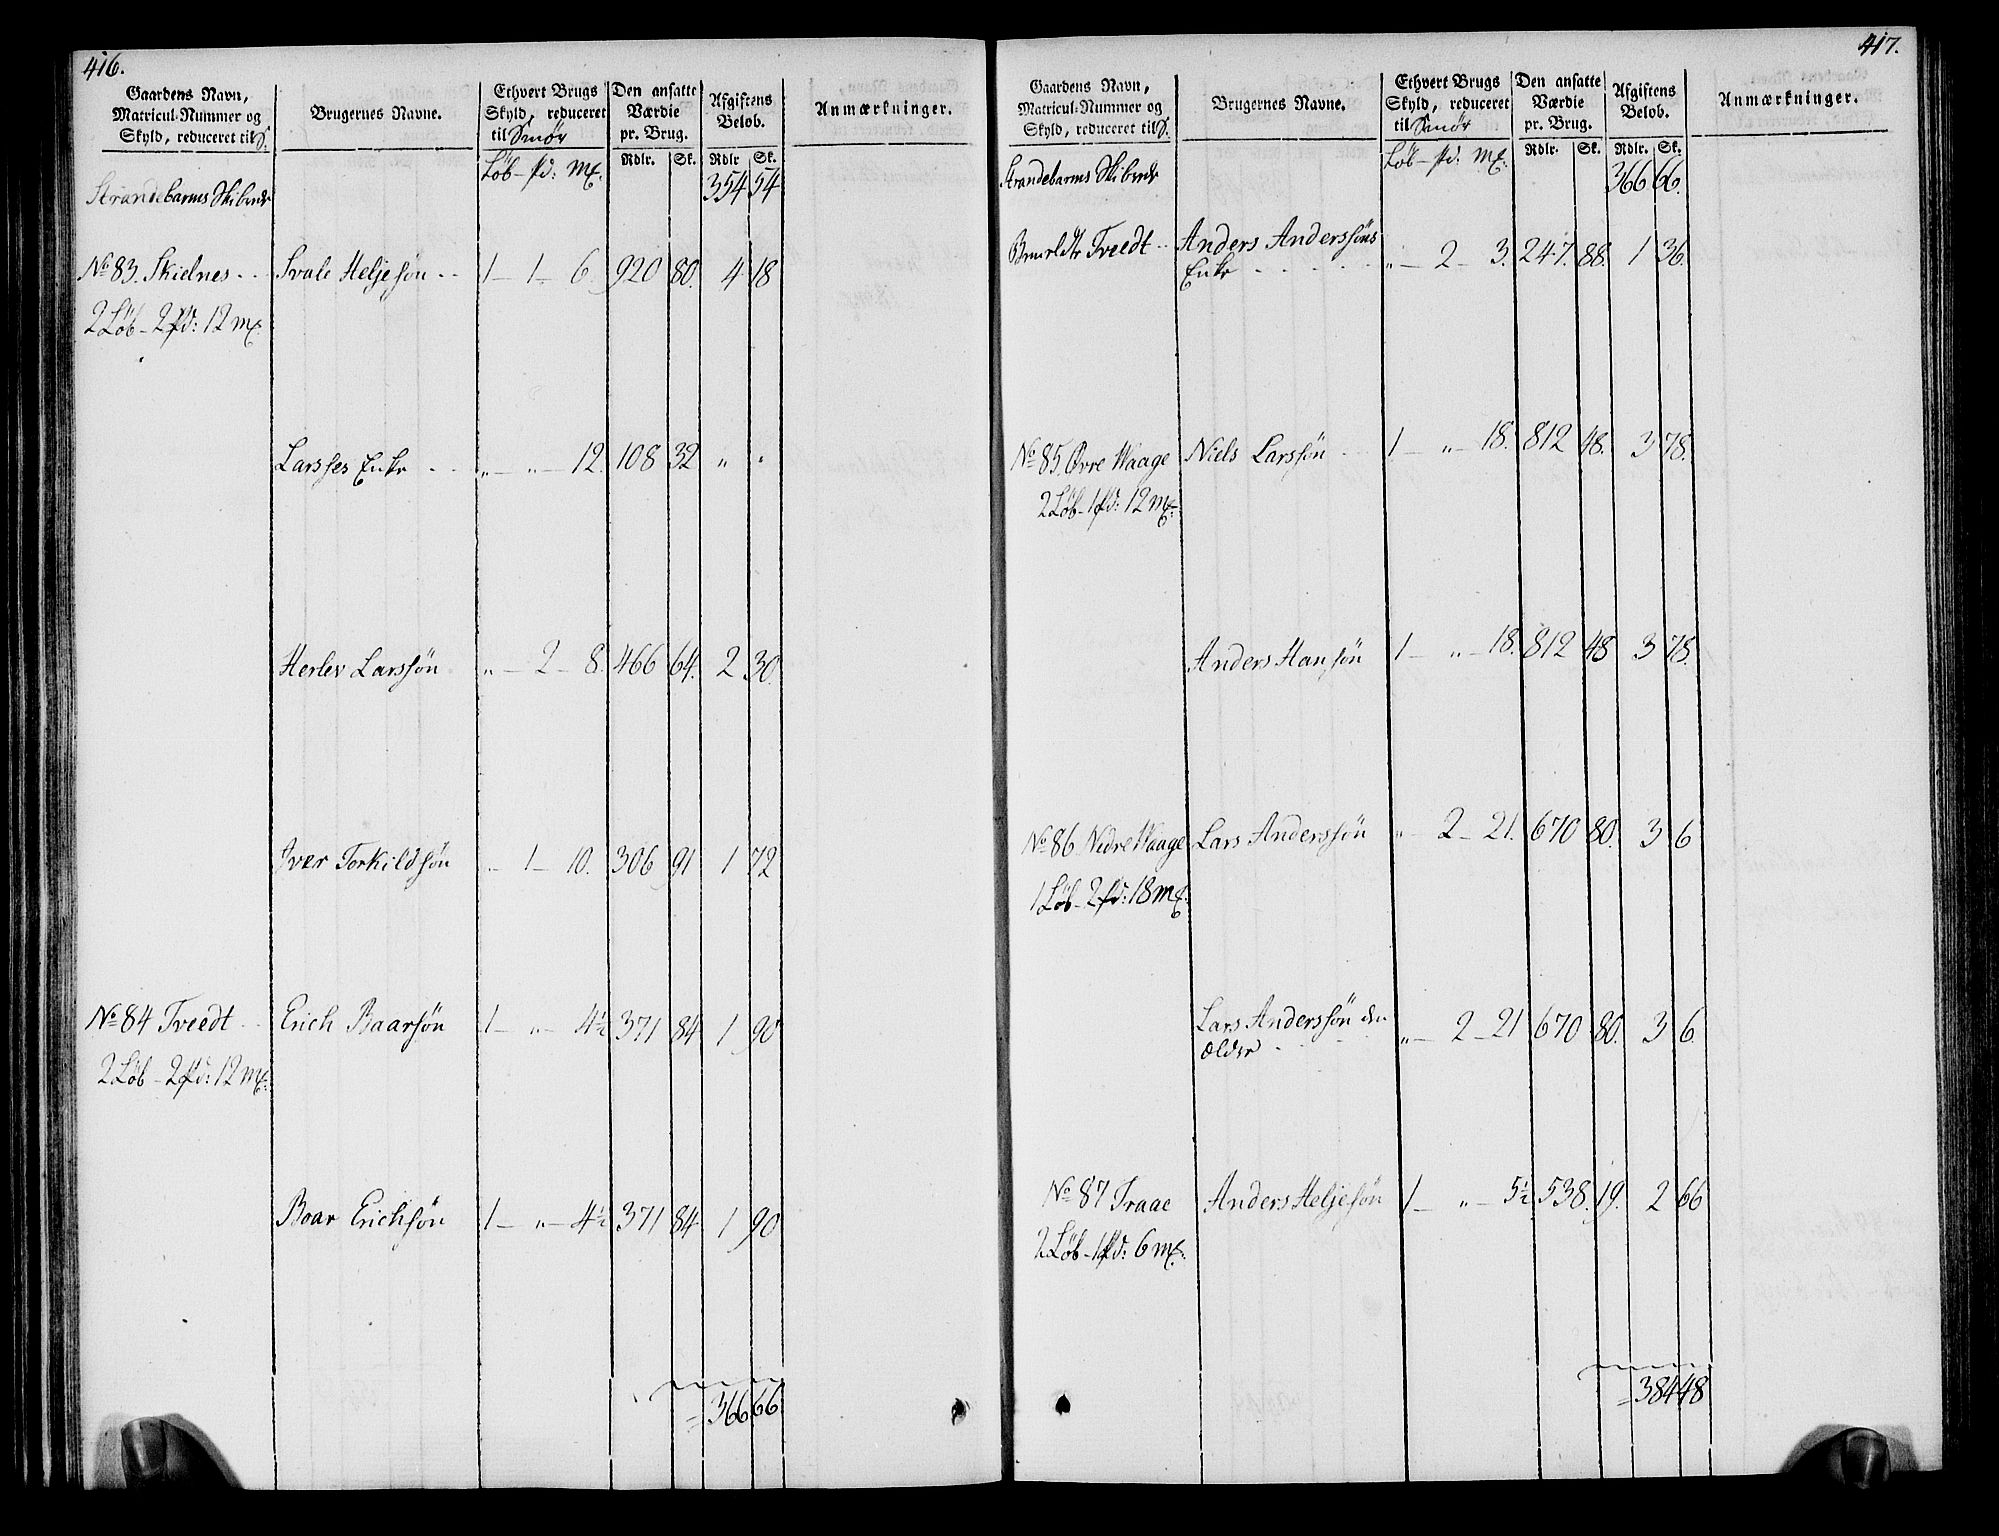 416.
Gaardens Navn,
Matricul-Nummer og
Skyld, reduceret til S.
Brugernes Navne.
Ethvert Brugs
Skyld, reduceret
til Smør
Den ansatte
Værdie
pr. Brug.
Afgiftens
Beløb.
Anmærkninger.
Løb - pd: mk.
Rdlr. Sk. Rdlr Sk.
Strandebarms Skibrede 354 54
No 83. Skielnes - - Svale Heljesøn - - 1 - 1 - 6. 920 80. 4 18
2 Løb - 2 pd: 12 mk.
Larses Enke - - „ - „ - 12. 108 32 „ „
Herlev Larssøn „ - 2 - 8. 466 64. 2 30.
Iver Torkildsøn „ - 1 - 10. 306 91 1 72
No 84 Tveedt - - Erich Baarsøn 1 - „ - 4½ 371 84 1 90
2 Løb - 2 pd: 12 mk.
Baar Erichsøn 1 - „ - 4½ 371 84 1 90
= 366 66
417.
Gaardens Navn,
Matricul-Nummer og
Skyld, reduceret til S.
Brugernes Navne.
Ethvert Brugs
Skyld, reduceret
til Smør
Den ansatte
Værdie
pr. Brug.
Afgiftens
Beløb.
Anmærkninger.
Løb - pd: mk.
Rdlr. Sk. Rdlr. Sk.
Strandebarms Skibrede 366 66.
Tveedt - - Anders Anderssøns
Enke - - - - „ - 2 - 3. 247. 88. 1 36.
No 85 Øvre Waage Niels Larssøn - - 1 - „ - 18. 812 48. 3 78.
2 Løb - 1 pd: 12 mk.
Anders Hansøn 1 - „ - 18. 812 48 3 78.
No 86 Nedre Waage Lars Anderssøn „ - 2 - 21. 670 80. 3 6
1 Løb - 2 pd: 18 mk.
Lars Anderssøn den
Ælder - - - „ - 2 - 21 670 80. 3 6.
No 87 Traae Anders Heljesøn 1 - „ - 5½ 538. 19. 2 66
2 Løb - 1 pd: 6 mk.
= 384 48